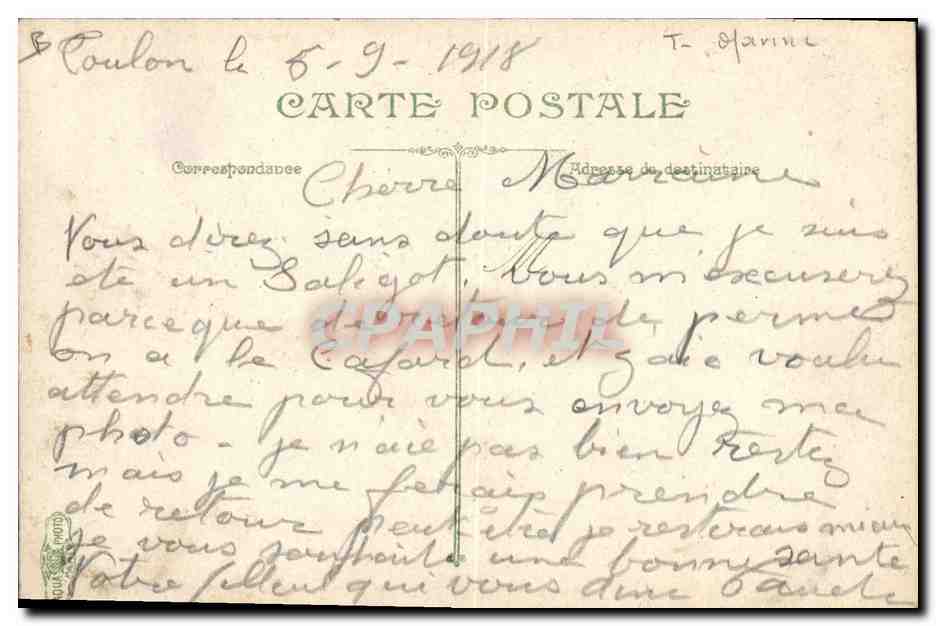 Toulon le 5-9-1918
CARTE POSTALE
Correspondance
Adresse du destinataire
Cherre Marraine
Vous direz sans doute que je suis
été un Saligot. Vous m'excuserez
parceque de retour de perme
on a le Cafard, et j'aie voulu
attendre pour vous envoyez ma
photo - je n'aie pas bien restez
mais je me ferais prendre
de retour peut être je resterais mieux
je vous souhaite une bonne sante
Votre filleul qui vous
CPAPHIL
AQUA PHOTO